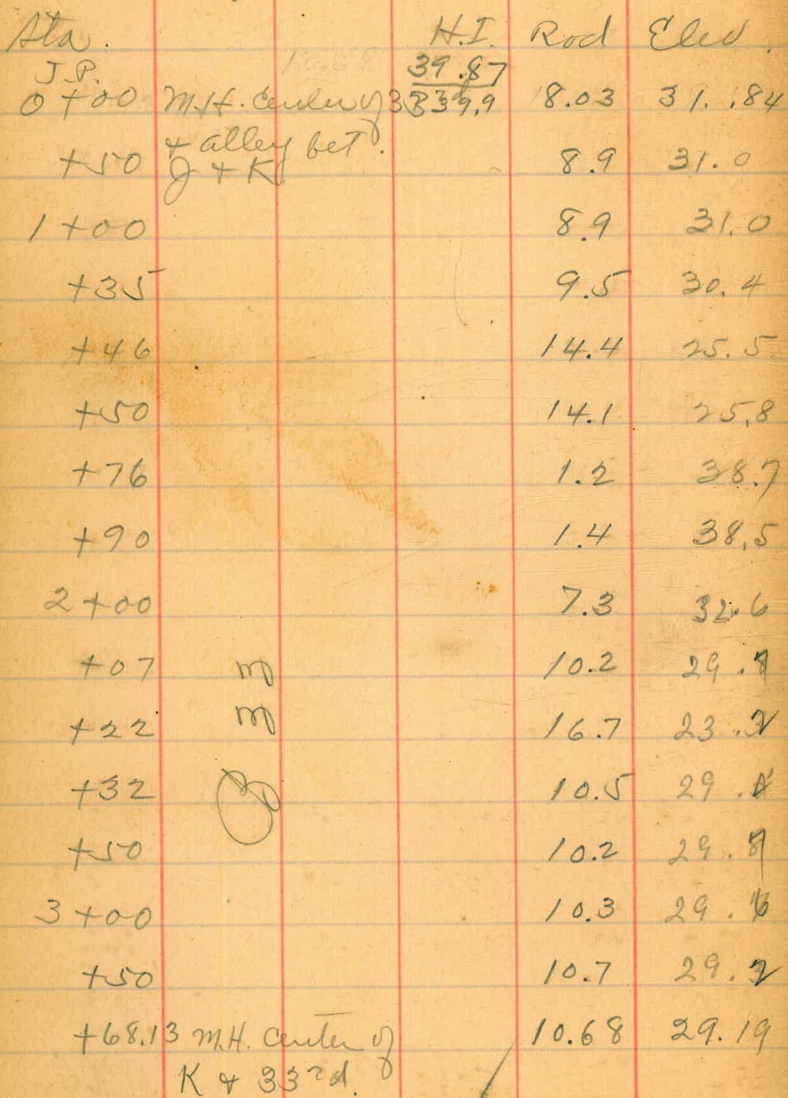 Sta. H.I. Rod Elev.
J.P. 39.87
0+00 M.H. center of 33 39.9 8.03 31.84
& alley bet.
+50 J & K 8.9 31.0
1+00 8.9 31.0
+35 9.5 30.4
+46 14.4 25.5
+50 14.1 25.8
+76 1.2 38.7
+90 1.4 38.5
2+00 7.3 32.6
+07 10.2 29.
+22 16.7 23.2
+32 10.5 29.
+50 10.2 29.
3+00 10.3 29.6
+50 10.7 29.2
+68.13 M.H. center of 10.68 29.19
K & 33rd.